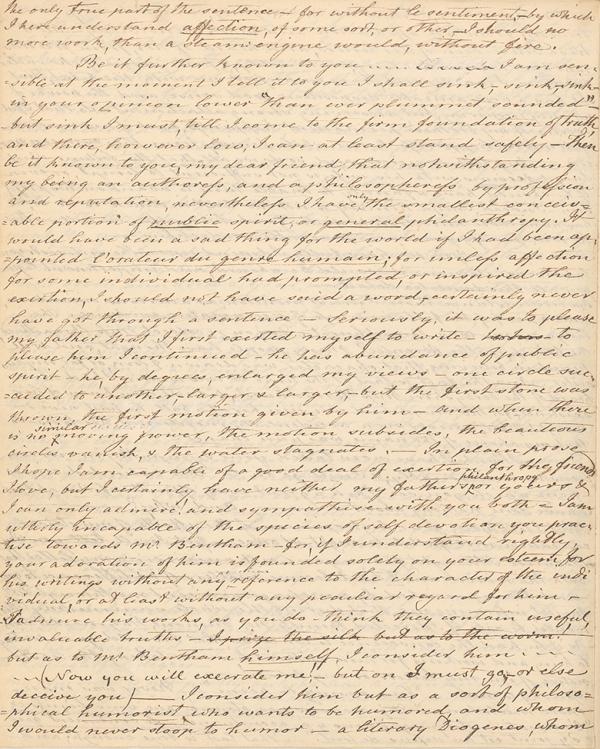 the only true part of the sentence – for without le sentiment, by which
I here understand affection, of some sort, or other – I should no
more work, than a steam engine would, without fire.
Be it further known to you ...... I am sen-
=sible at the moment I tell it to you I shall sink – sink – sink –
in your opinion lower "than ever plummet sounded" –
but sink I must, till I come to the firm foundation of truth,
and there, however low, I can at least stand safely – Then
be it known to you, my dear friend, that notwithstanding
my being an authoress, and a philosopheress by profession
and reputation, nevertheless I have only the smallest conceiv=
=able portion of public spirit, or general philanthropy. It
would have been a sad thing for the world if I had been ap-
=pointed l'orateur du genre humain; for unless affection
for some individual had prompted, or inspired the
exertion, I should not have said a word, certainly never
have got through a sentence – Seriously, it was to please
my father that I first exerted myself to write – to
please him I continued – he has abundance of public
spirit – he, by degrees, enlarged my views – one circle suc-
=ceeded to another – larger & larger, – but the first stone was
thrown, the first motion given by him – and when there
is no similar moving power, the motion subsides, the beauteous
circles vanish, & the water stagnates. – In plain prose
I hope I am capable of a good deal of exertion for the friends
I love, but I certainly have neither my father's philanthropy or yours &
I can only admire, and sympathise with you both = I am
utterly incapable of the species of self devotion you prac-
tise towards Mr. Bentham – for, if I understand rightly,
your adoration of him is founded solely on your esteem for
his writings without any reference to the character of the indi
vidual, or at least without any peculiar regard for him –
I admire his works, as you do – think they contain useful,
invaluable truths – I prize the silk but as to the worm!
but as to Mr. Bentham himself, I consider him ......
...(Now you will execrate me! – but on I must go – or else
deceive you) – I consider him but as a sort of philoso=
=phical humorist who wants to be humored, and whom
I would never stoop to humor – a literary Diogenes, whom